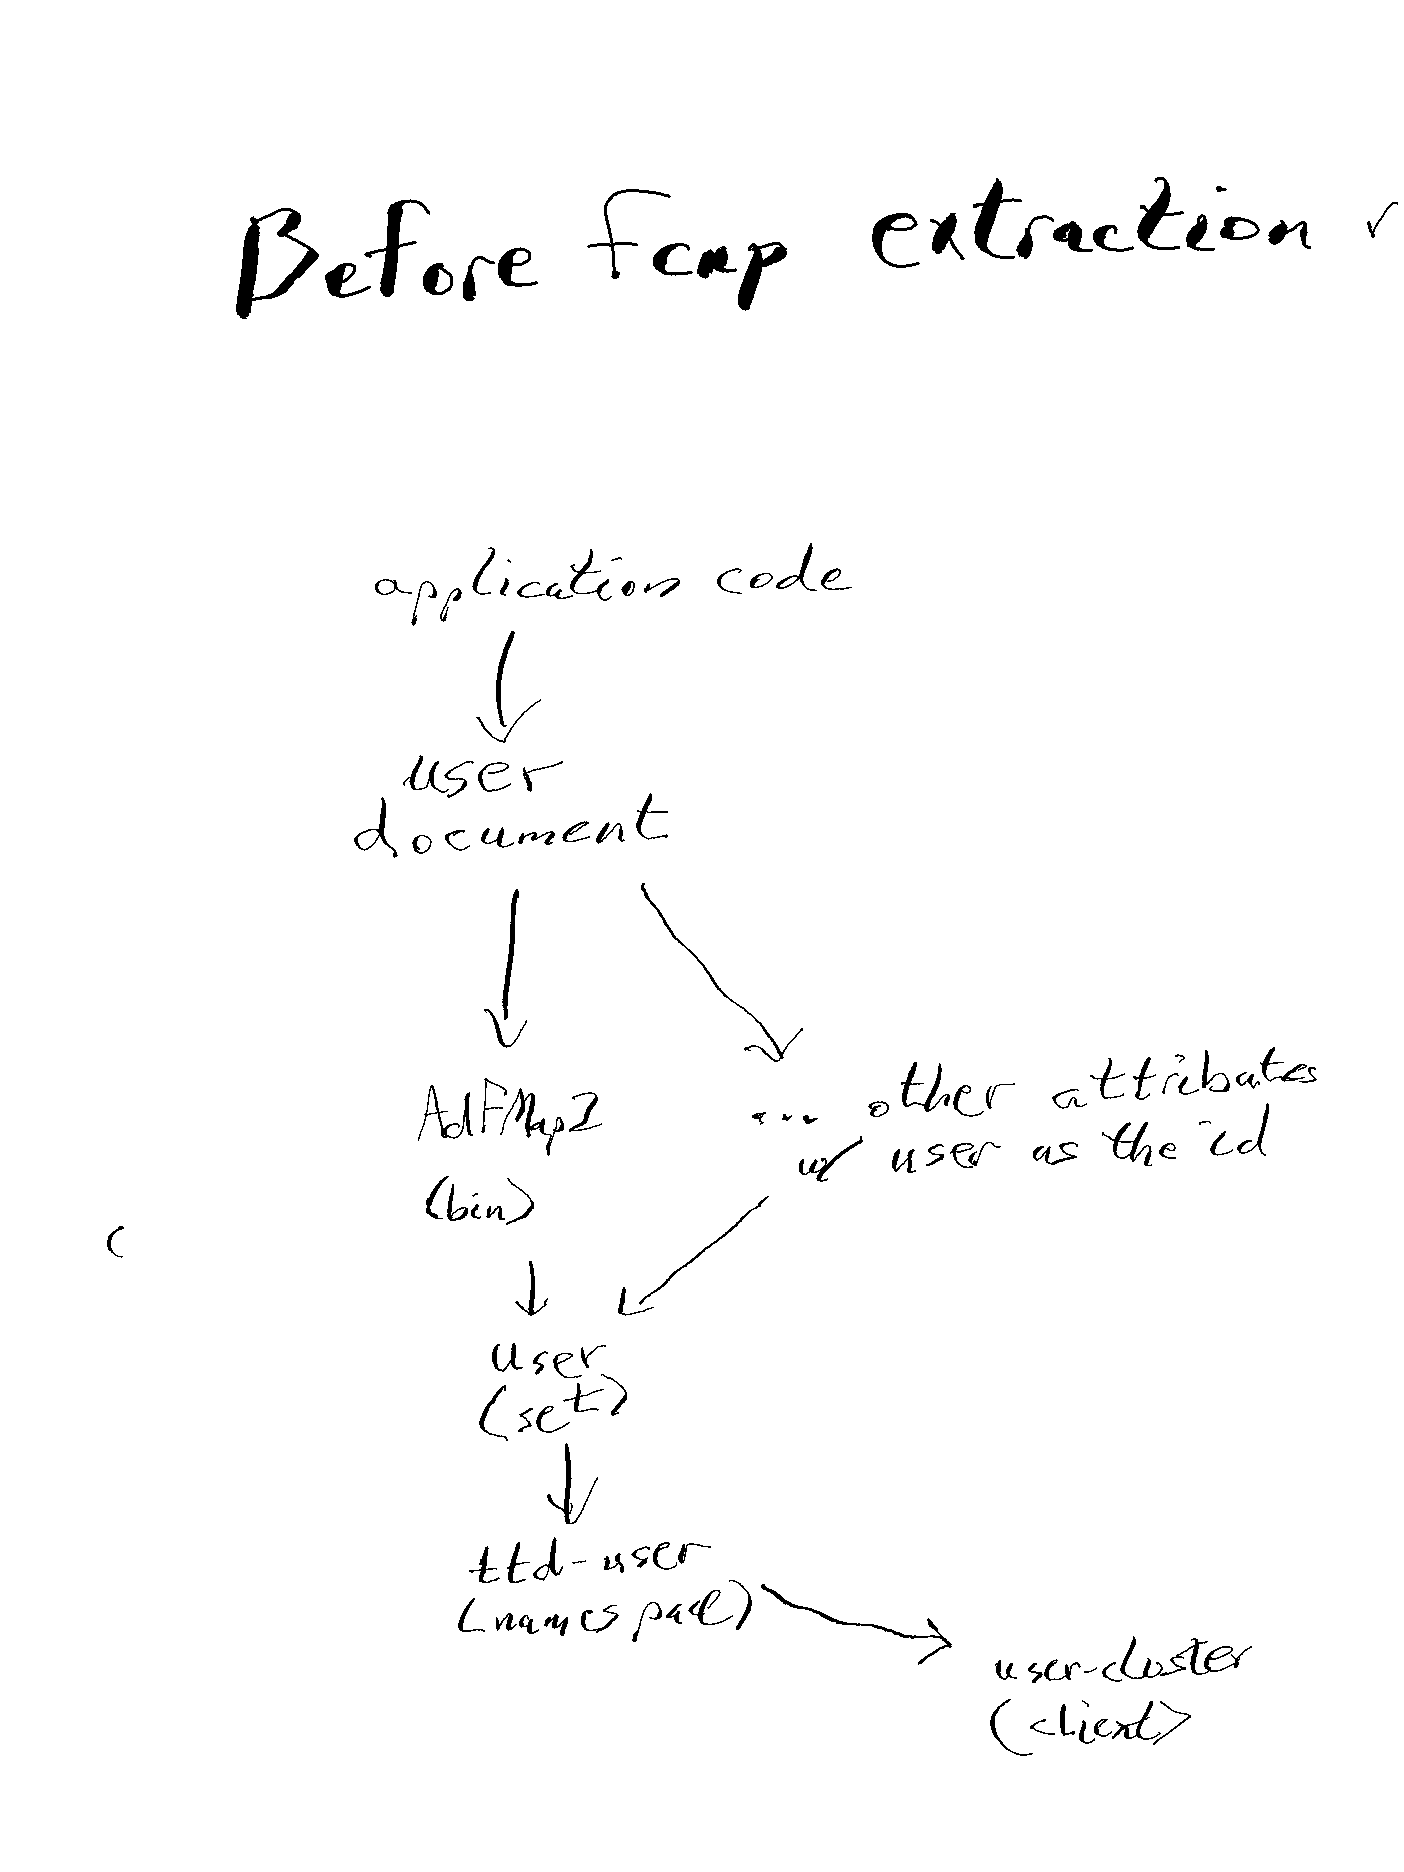 Before fcap extraction
application code
user
document
AdFMap2
... other attributes
w/ user as the id
(bin)
user
(set)
ttd-user
(namespace)
user-cluster
(client)